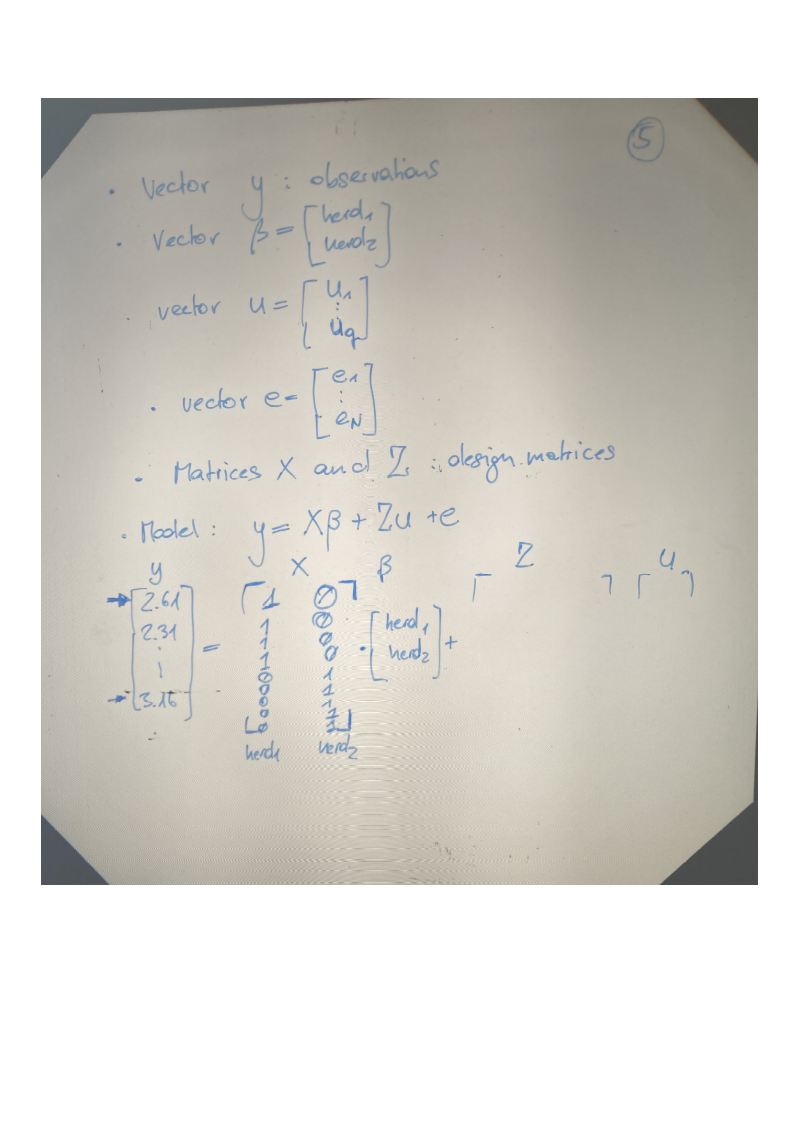 5
· Vector y : observations
· Vector β = [herd1
herd2]
· vector u = [u1
⋮
uq]
· vector e = [e1
⋮
eN]
· Matrices X and Z : design matrices
· Model : y = Xβ + Zu + e
y X β Z u
→ [2.61 [1 0] [ ] [ ]
2.31 1 0 [herd1
⋮ = 1 0 · herd2] +
1 0
0 1
→ 3.16] 0 1
0 1
0 1
[0 1]
herd1 herd2